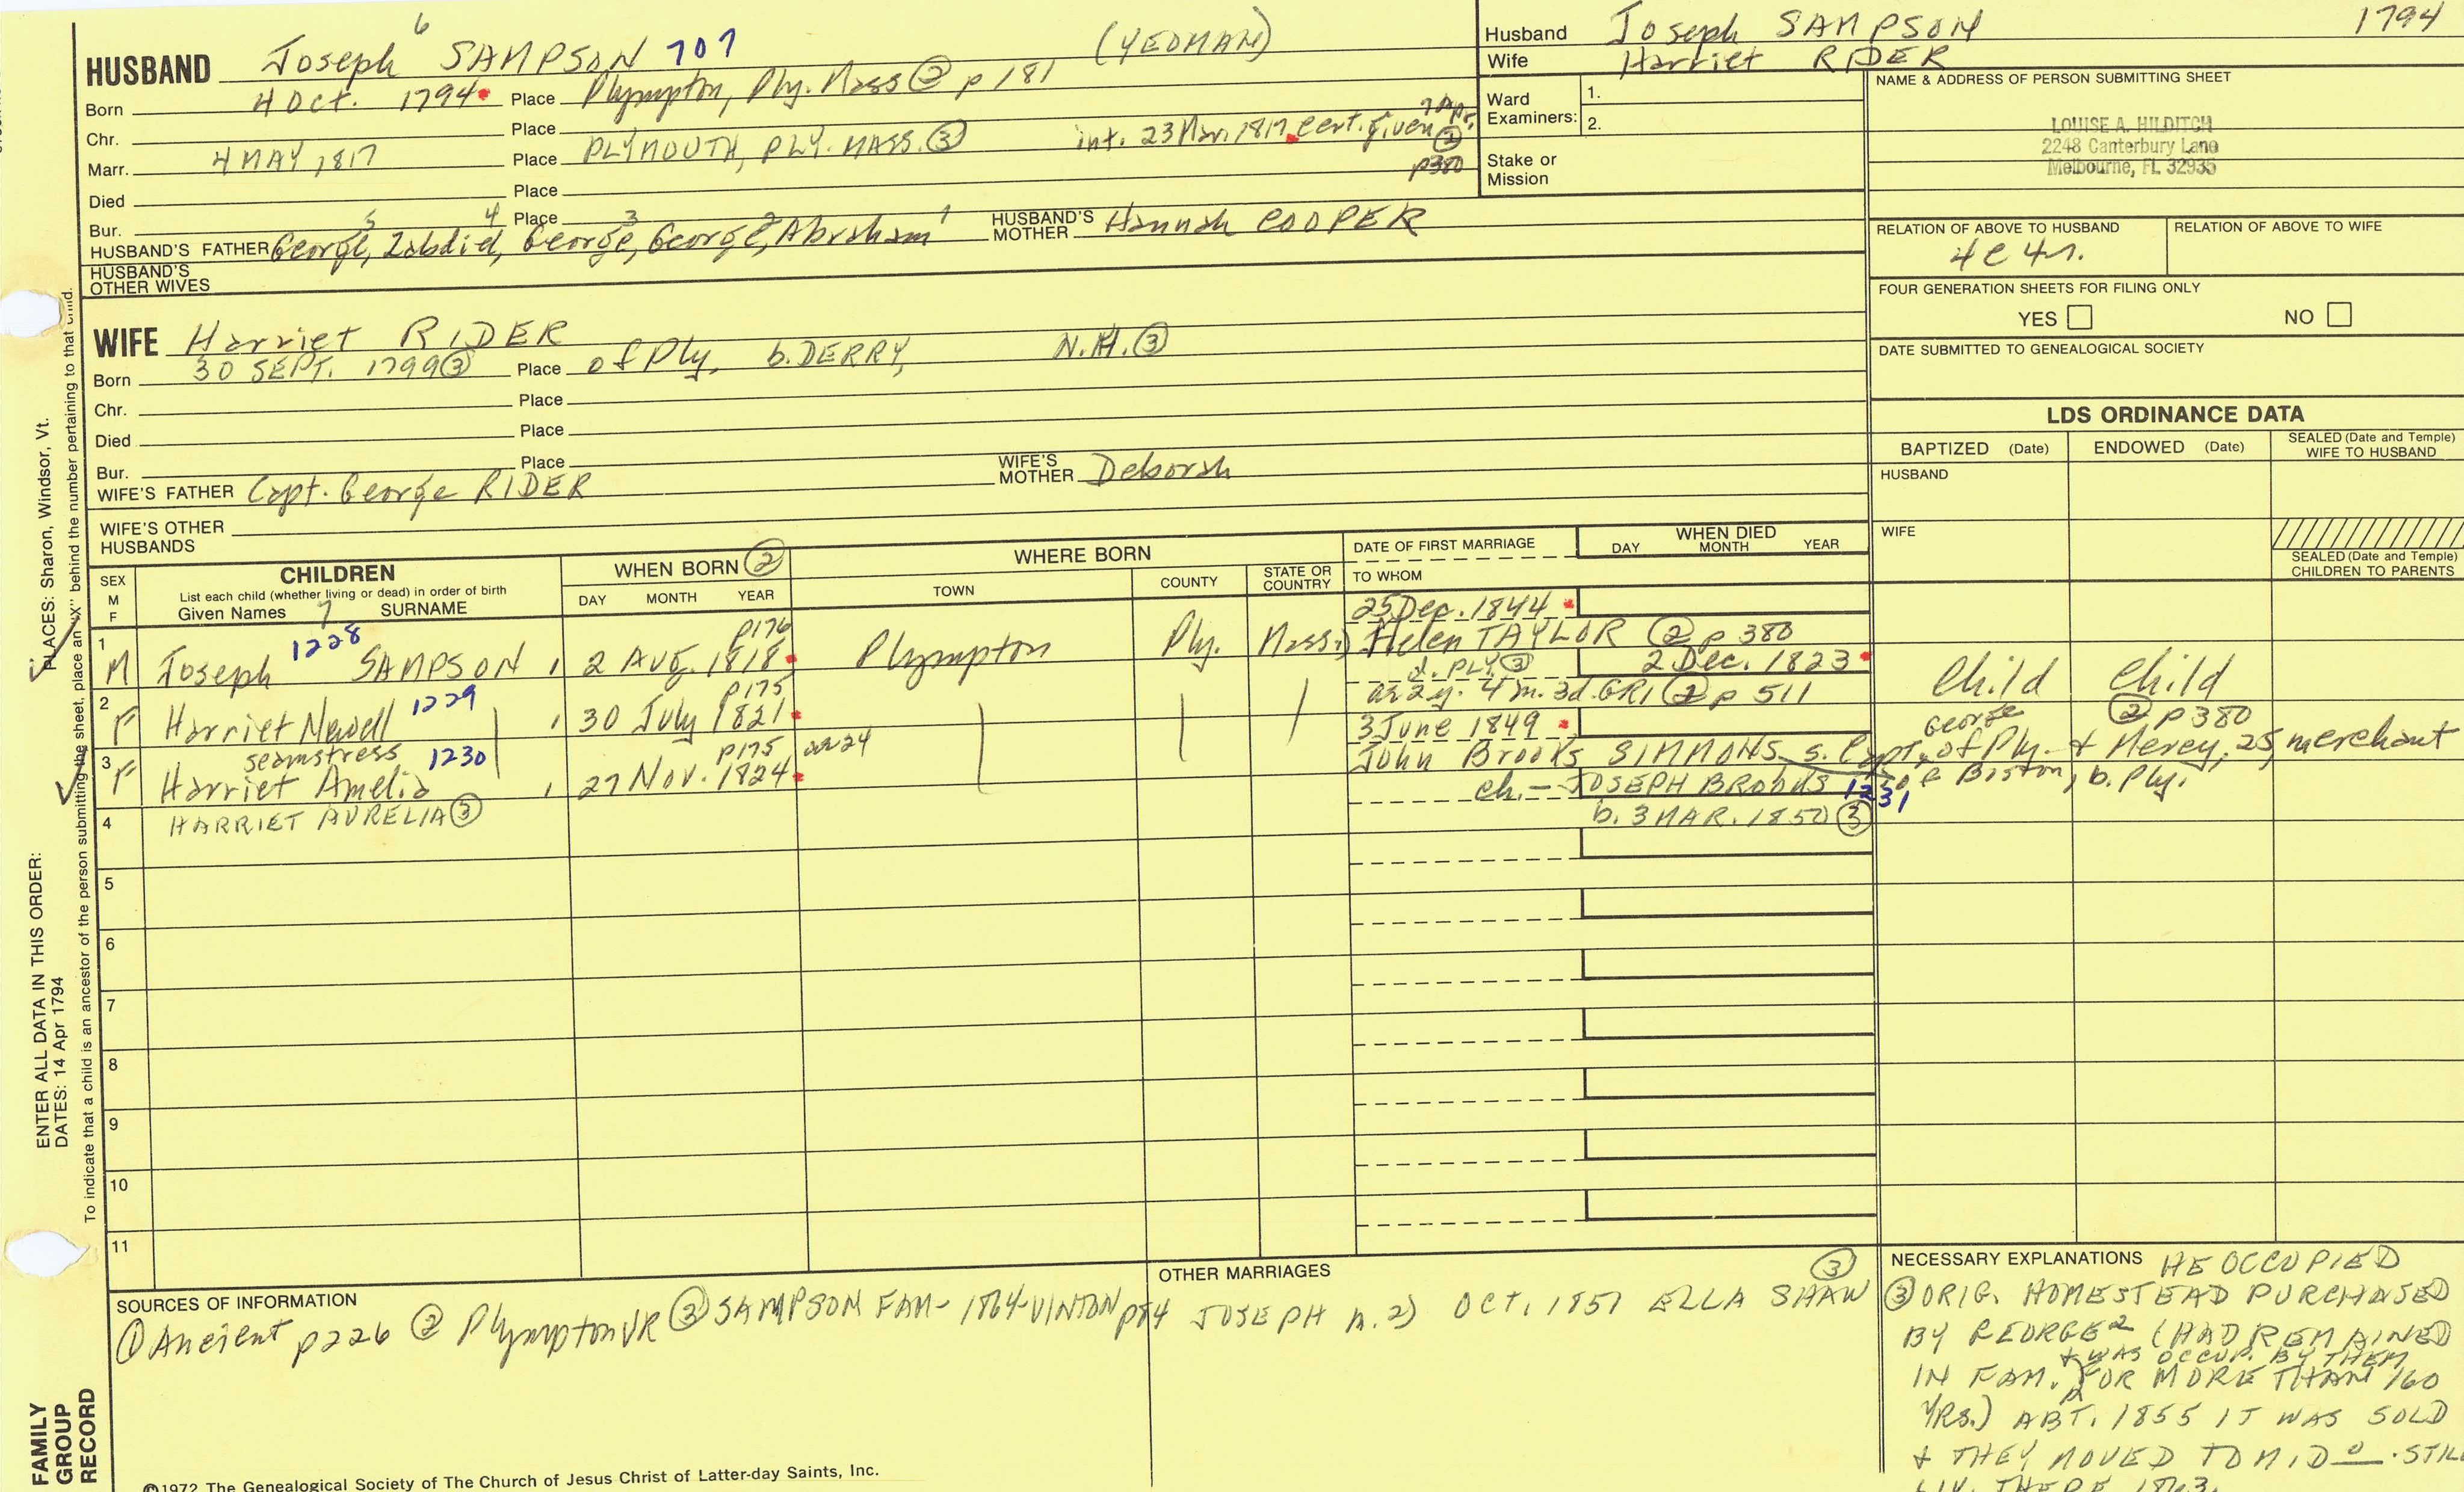 HUSBAND Joseph 6 SAMPSON 707 (YEOMAN)
Born 4 Oct. 1794 Place Plympton, Ply. Mass ② p 181
Chr. Place
Marr. 4 MAY 1817 Place PLYMOUTH, PLY. MASS. ③ int. 23 Mar. 1817 cert. given 7 Apr. p380
Died Place
Bur. Place
HUSBAND'S FATHER George, 5 Zabdiel, 4 George, 3 George, 2 Abraham 1 HUSBAND'S MOTHER Hannah COOPER
HUSBAND'S OTHER WIVES
WIFE Harriet RIDER
Born 30 SEPT. 1799 ③ Place of Ply, b. DERRY, N.H. ③
Chr. Place
Died Place
Bur. Place
WIFE'S FATHER Capt. George RIDER WIFE'S MOTHER Deborah
WIFE'S OTHER HUSBANDS
Husband Joseph SAMPSON 1794
Wife Harriet RIDER
Ward Examiners: 1.
2.
Stake or Mission
NAME & ADDRESS OF PERSON SUBMITTING SHEET
LOUISE A. HILDITCH
2248 Canterbury Lane
Melbourne, FL 32935
RELATION OF ABOVE TO HUSBAND RELATION OF ABOVE TO WIFE
4c4r.
FOUR GENERATION SHEETS FOR FILING ONLY
YES NO
DATE SUBMITTED TO GENEALOGICAL SOCIETY
LDS ORDINANCE DATA
BAPTIZED (Date) ENDOWED (Date) SEALED (Date and Temple) WIFE TO HUSBAND
HUSBAND
WIFE
SEALED (Date and Temple) CHILDREN TO PARENTS
SEX M F
CHILDREN
List each child (whether living or dead) in order of birth
Given Names 7 SURNAME
WHEN BORN ②
DAY MONTH YEAR
WHERE BORN
TOWN COUNTY STATE OR COUNTRY
DATE OF FIRST MARRIAGE
TO WHOM
WHEN DIED
DAY MONTH YEAR
25 Dec. 1844
1 M Joseph 1228 SAMPSON 2 AUG. 1818 p176 Plympton Ply. Mass. Helen TAYLOR ② p 380
d. PLY. ③ 2 Dec. 1823
2 F Harriet Newell 1229 30 July 1821 p175 ae 2 y. 4 m. 3d. GR1 ② p 511 Child Child
3 June 1849 ② p380
3 F seamstress 1230 Harriet Amelia 27 Nov. 1824 p175 ae 24 John Brooks SIMMONS s. Capt. George of Ply. & Mercy, 25, merchant of Boston, b. Ply.
ch. - JOSEPH BROOKS 1231
4 HARRIET AURELIA ③ b. 3 MAR. 1850 ③
5
6
7
8
9
10
11
SOURCES OF INFORMATION
① Ancient p226 ② Plympton VR ③ SAMPSON FAM - 1864 - VINTON p84
OTHER MARRIAGES
③
JOSEPH m. 2) OCT. 1857 ELLA SHAW
NECESSARY EXPLANATIONS HE OCCUPIED
③ ORIG. HOMESTEAD PURCHASED
BY GEORGE 2 (HAD REMAINED
& WAS OCCUP. BY THEM
IN FAM. FOR MORE THAN 160
YRS.) ABT. 1855 IT WAS SOLD
& THEY MOVED TO MID o. STILL
LIV. THERE 1863.
PLACES: Sharon, Windsor, Vt.
ENTER ALL DATA IN THIS ORDER:
DATES: 14 Apr 1794
To indicate that a child is an ancestor of the person submitting the sheet, place an "X" behind the number pertaining to that child.
FAMILY GROUP RECORD
©1972 The Genealogical Society of The Church of Jesus Christ of Latter-day Saints, Inc.